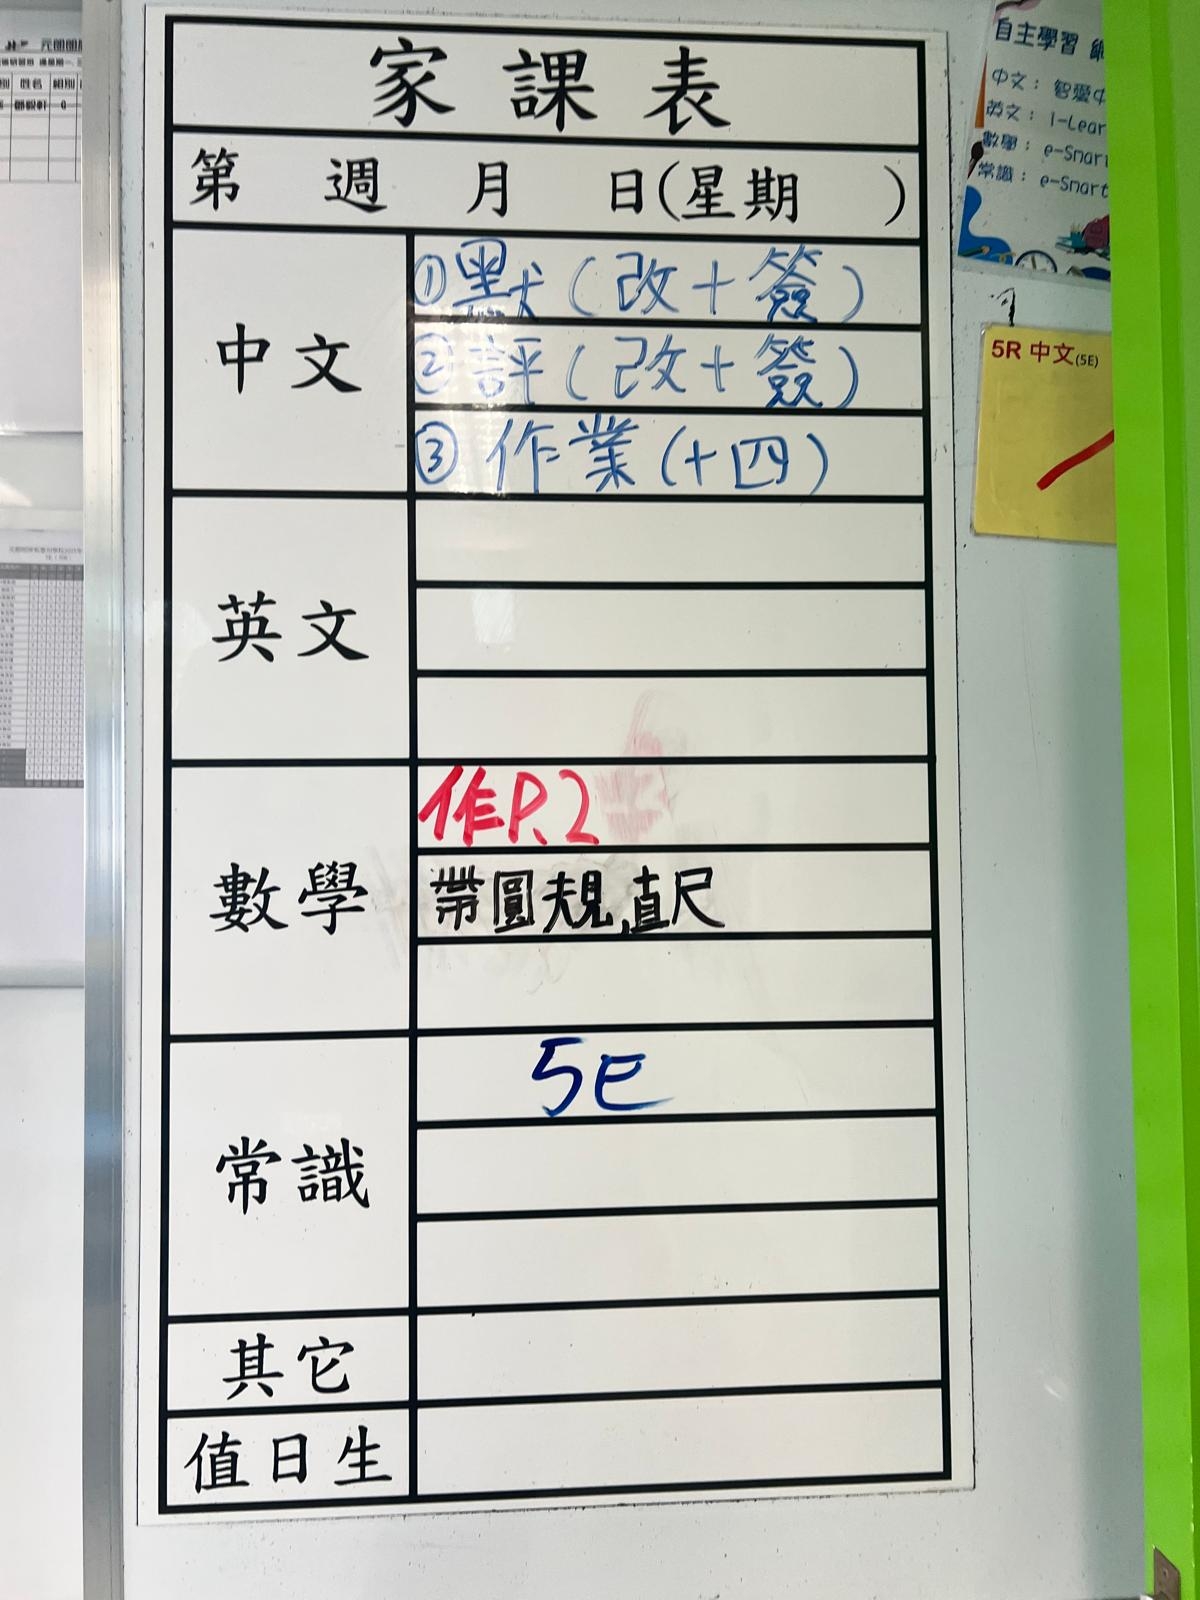 家課表
第 週 月 日(星期 )
中文
①默(改+簽)
②評(改+簽)
③作業(十四)
英文
數學
作P.2
帶圓規,直尺
常識
5E
其它
值日生
自主學習
中文：智愛中
英文：I-Lear
數學：e-Smart
常識：e-Smart
5R 中文(5E)
姓名 組別